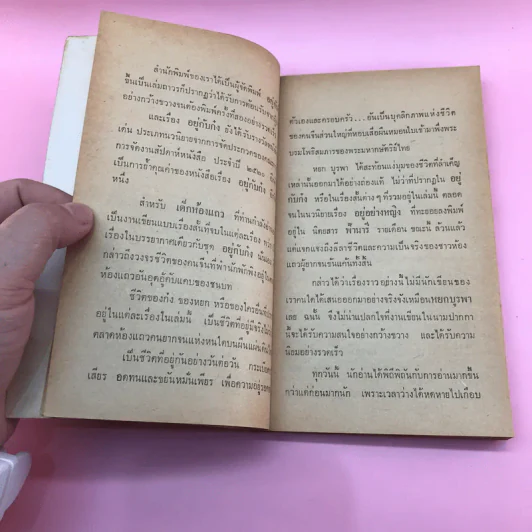 สำนักพิมพ์ของเราได้เป็นผู้จัดพิมพ์
ขึ้นเป็นเล่มถาวรก็ปรากฏว่าได้รับการต้อนรับจาก
อย่างกว้างขวางจนต้องพิมพ์ครั้งที่สองอย่างรวดเร็ว
เรื่อง อยู่กับก๋ง ยังได้รับรางวัล
เด่น ประเภทนวนิยายจากการจัดประกวดของคณะ
การจัดงานสัปดาห์หนังสือ ประจำปี ๒๕๒๐
เป็นการย้ำคุณค่าของหนังสือเรื่อง อยู่กับก๋ง
หนึ่ง
สำหรับ เด็กห้องแถว ที่ท่านกำลัง
เป็นงานเขียนแบบเรื่องสั้นที่จบในแต่ละเรื่อง
เรื่องในบรรยากาศเดียวกับชุด อยู่กับก๋ง
กล่าวถึงวงจรชีวิตของคนจีนที่พำนักพักพิงอยู่ใน
ห้องแถวอันอุดอู้คับแคบของชนบท
ชีวิตของก๋ง ของหยก หรือของใครอื่นที่
อยู่ในแต่ละเรื่องในเล่มนี้ เป็นชีวิตที่อยู่จริง
ตลาดห้องแถวคนยากจนแห่งหนใดบนผืนแผ่นดิน
เป็นชีวิตที่อยู่กันอย่างวันต่อวัน
เสียร อดทนและขยันหมั่นเพียร เพื่อความอยู่รอด
ตัวเองและครอบครัว... อันเป็นบุคลิกภาพแห่งชีวิต
ของคนจีนส่วนใหญ่ที่หอบเสื่อผืนหมอนใบเข้ามาพึ่งพระ
บรมโพธิสมภารของพระมหากษัตริย์ไทย
หยก บูรพา ได้สะท้อนแง่มุมของชีวิตที่ลำเค็ญ
เหล่านั้นออกมาได้อย่างถ่องแท้ ไม่ว่าที่ปรากฏใน อยู่
กับก๋ง หรือในเรื่องสั้นต่าง ๆ ที่รวมอยู่ในเล่มนี้ ตลอด
จนในนวนิยายเรื่อง อยู่อย่างหญิง ที่ทะยอยลงพิมพ์
อยู่ใน นิตยสาร ฟ้านารี รายเดือน ขณะนี้ ล้วนแล้ว
แต่แจกแจงถึงค่าชีวิตและความเป็นจริงของชาวห้อง
แถวผู้ยากจนข้นแค้นทั้งสิ้น
กล่าวได้ว่าเรื่องราว อย่างนี้ ไม่มีนักเขียนของ
เราคนใดได้เสนอออกมาอย่างจริงจังเหมือนหยกบูรพา
เลย ฉนั้น จึงไม่น่าแปลกใจที่งานเขียนในนามปากกา
นี้จะได้รับความสนใจอย่างกว้างขวาง และได้รับความ
นิยมอย่างรวดเร็ว
ทุกวันนี้ นักอ่านได้พิถีพิถันกับการอ่านมากขึ้น
กว่าแต่ก่อนมากนัก เพราะเวลาว่างได้หดหายไปเกือบ